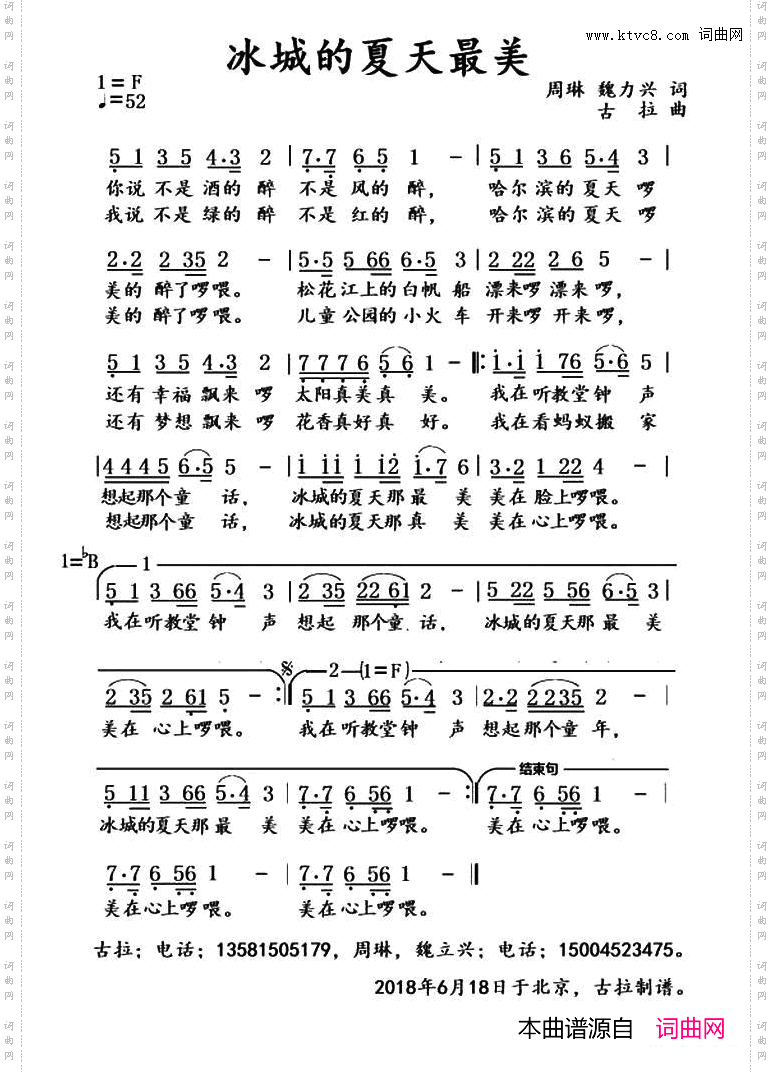 www.ktvc8.com 词曲网
冰城的夏天最美
1=F
♩=52
周琳 魏力兴 词
古 拉 曲
5 1 3 5 4·3 2 | 7·7 6 5 1 - | 5 1 3 6 5·4 3 |
你说 不是 酒的 醉 不是 风的 醉， 哈尔 滨的 夏天 啰
我说 不是 绿的 醉 不是 红的 醉， 哈尔 滨的 夏天 啰
2·2 2 35 2 - | 5·5 5 66 6·5 3 | 2 22 2 6 5 - |
美的 醉了啰喂。 松花 江上的 白帆 船 漂来啰 漂来 啰，
美的 醉了啰喂。 儿童 公园的 小火 车 开来啰 开来 啰，
5 1 3 5 4·3 2 | 7 7 7 6 5 6 1 - ‖: i·i i 76 5·6 5 |
还有 幸福 飘来 啰 太阳真美真 美。 我在 听教堂 钟 声
还有 梦想 飘来 啰 花香真好真 好。 我在 看蚂蚁 搬 家
| 4 4 4 5 6·5 5 - | i ii i i2 i·7 6 | 3·2 1 22 4 - |
想起那个童 话， 冰城的夏天那 最 美 美在 脸上啰喂。
想起那个童 话， 冰城的夏天那 真 美 美在 心上啰喂。
1=♭B 1
5 1 3 66 5·4 3 | 2 35 22 61 2 - | 5 22 5 56 6·5 3 |
我在听教堂 钟 声 想起 那个童 话， 冰城的夏天那 最 美
𝄋 2 (1=F)
2 35 2 61 5 - :‖ 5 1 3 66 5·4 3 | 2·2 2235 2 - |
美在 心上啰喂。 我在听教堂钟 声 想起那个童 年，
结束句
5 11 3 66 5·4 3 | 7·7 6 56 1 - :‖ 7·7 6 56 1 - |
冰城的夏天那 最 美 美在心上啰喂。 美在心上啰喂。
7·7 6 56 1 - | 7·7 6 56 1 - ‖
美在心上啰喂。 美在心上啰喂。
古拉；电话；13581505179，周琳，魏立兴；电话；15004523475。
2018年6月18日于北京，古拉制谱。
本曲谱源自 词曲网